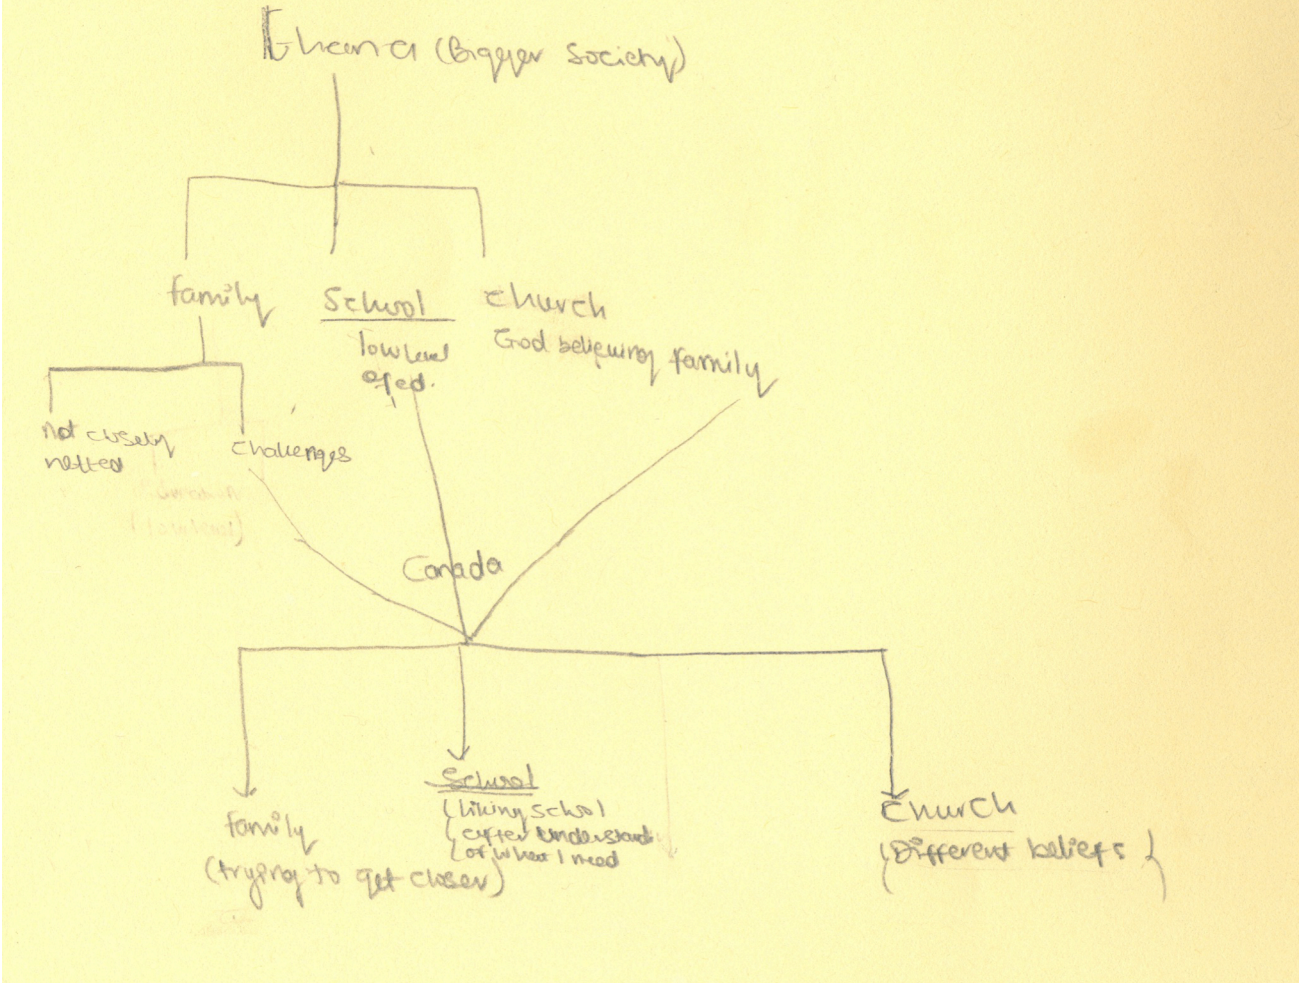 Ghana (Bigger society)
family
School
church
low level
of ed.
God believing family
not closely
netted
challenges
Canada
family
(trying to get closer)
School
(liking school
(after understand
(of what I need
church
(Different beliefs)